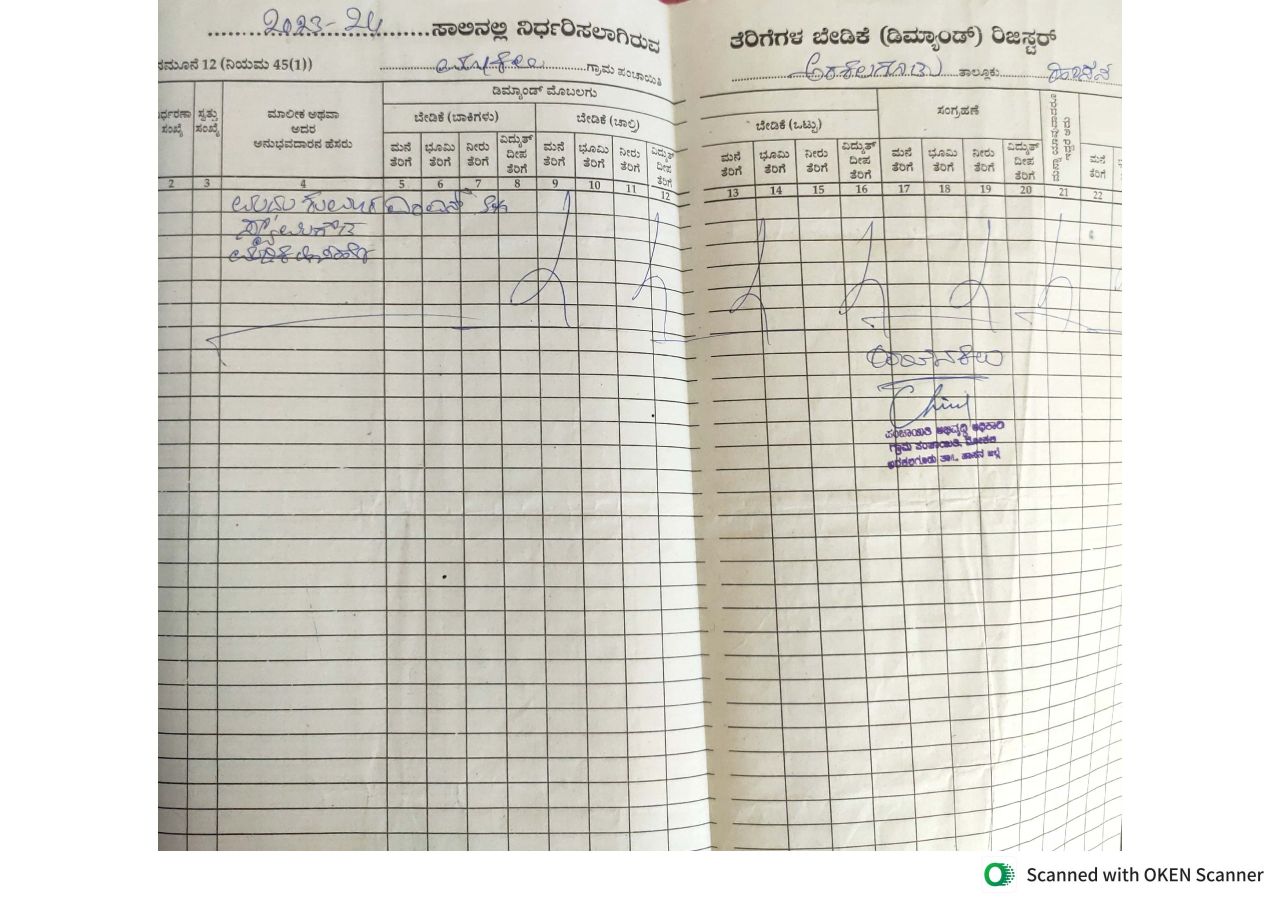 2023-24 ಸಾಲಿನಲ್ಲಿ ನಿರ್ಧರಿಸಲಾಗಿರುವ ತೆರಿಗೆಗಳ ಬೇಡಿಕೆ (ಡಿಮ್ಯಾಂಡ್) ರಿಜಸ್ಟರ್
ನಮೂನೆ 12 (ನಿಯಮ 45(1)) ಗ್ರಾಮ ಪಂಚಾಯಿತಿ ಅರಕಲಗೂಡು ತಾಲ್ಲೂಕು ಹಾಸನ
ಡಿಮ್ಯಾಂಡ್ ಮೊಬಲಗು
ಸಂಗ್ರಹಣೆ
ಬೇಡಿಕೆ (ಬಾಕಿಗಳು) ಬೇಡಿಕೆ (ಚಾಲ್ತಿ) ಬೇಡಿಕೆ (ಒಟ್ಟು)
ರ್ಧರಣಾ ಸಂಖ್ಯೆ
ಸ್ವತ್ತು ಸಂಖ್ಯೆ
ಮಾಲೀಕ ಅಥವಾ
ಅದರ
ಅನುಭವದಾರನ ಹೆಸರು
ಮನೆ ತೆರಿಗೆ ಭೂಮಿ ತೆರಿಗೆ ನೀರು ತೆರಿಗೆ ವಿದ್ಯುತ್ ದೀಪ ತೆರಿಗೆ ಮನೆ ತೆರಿಗೆ ಭೂಮಿ ತೆರಿಗೆ ನೀರು ತೆರಿಗೆ ವಿದ್ಯುತ್ ದೀಪ ತೆರಿಗೆ
ಮನೆ ತೆರಿಗೆ ಭೂಮಿ ತೆರಿಗೆ ನೀರು ತೆರಿಗೆ ವಿದ್ಯುತ್ ದೀಪ ತೆರಿಗೆ ಮನೆ ತೆರಿಗೆ ಭೂಮಿ ತೆರಿಗೆ ನೀರು ತೆರಿಗೆ ವಿದ್ಯುತ್ ದೀಪ ತೆರಿಗೆ ಮನೆ ತೆರಿಗೆ
2 3 4 5 6 7 8 9 10 11 12 13 14 15 16 17 18 19 20 21 22
ಪಂಚಾಯಿತಿ ಅಭಿವೃದ್ಧಿ ಅಧಿಕಾರಿ
ಗ್ರಾಮ ಪಂಚಾಯಿತಿ,
ಅರಕಲಗೂಡು ತಾ||, ಹಾಸನ ಜಿಲ್ಲೆ
Scanned with OKEN Scanner